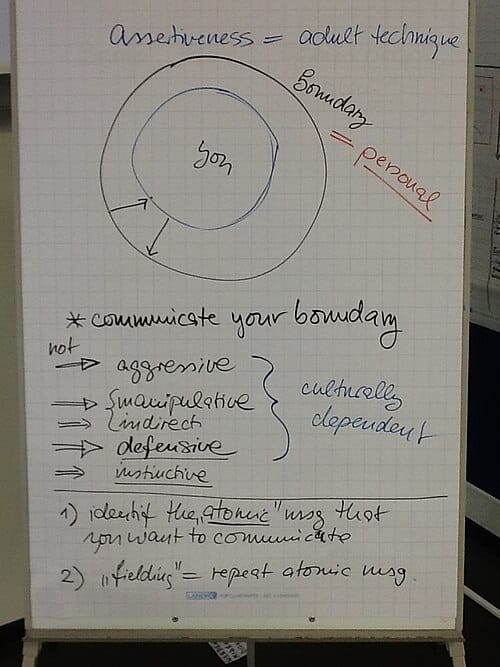 Assertiveness = adult technique
Boundary
= personal
you
* communicate your boundary
not
⇒ aggressive
⇒ {manipulative
⇒ {indirect
⇒ defensive
⇒ instinctive
} culturally
dependent
1) identif the „atomic" msg that
you want to communicate
2) „fielding" = repeat atomic msg.
LANDRÉ